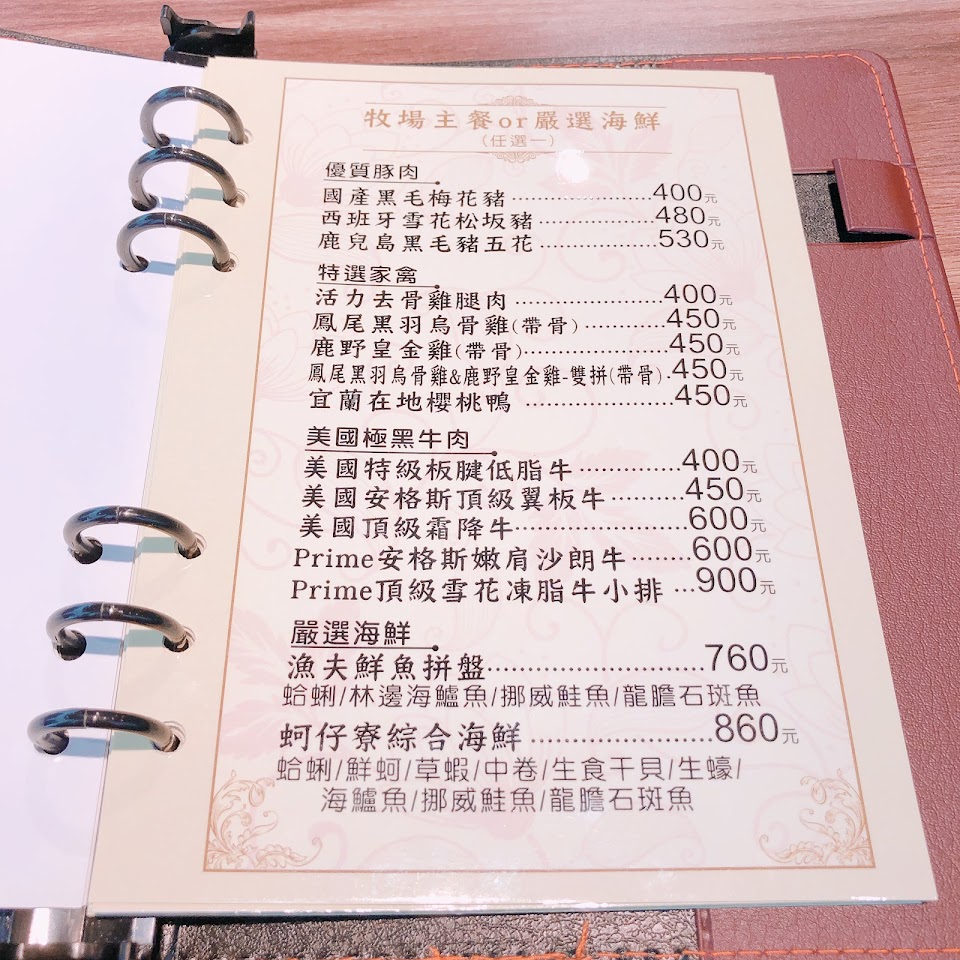 牧場主餐or嚴選海鮮
(任選一)
優質豚肉
國產黑毛梅花豬......................400元
西班牙雪花松坂豬..................480元
鹿兒島黑毛豬五花..................530元
特選家禽
活力去骨雞腿肉......................400元
鳳尾黑羽烏骨雞(帶骨)............450元
鹿野皇金雞(帶骨)......................450元
鳳尾黑羽烏骨雞&鹿野皇金雞-雙拼(帶骨).450元
宜蘭在地櫻桃鴨......................450元
美國極黑牛肉
美國特級板腱低脂牛...............400元
美國安格斯頂級翼板牛..........450元
美國頂級霜降牛.........................600元
Prime安格斯嫩肩沙朗牛........600元
Prime頂級雪花凍脂牛小排...900元
嚴選海鮮
漁夫鮮魚拼盤.............................760元
蛤蜊/林邊海鱸魚/挪威鮭魚/龍膽石斑魚
蚵仔寮綜合海鮮.........................860元
蛤蜊/鮮蚵/草蝦/中卷/生食干貝/生蠔/
海鱸魚/挪威鮭魚/龍膽石斑魚